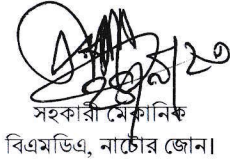 সহকারী মেকানিক
বিএমডিএ, নাটোর জোন।